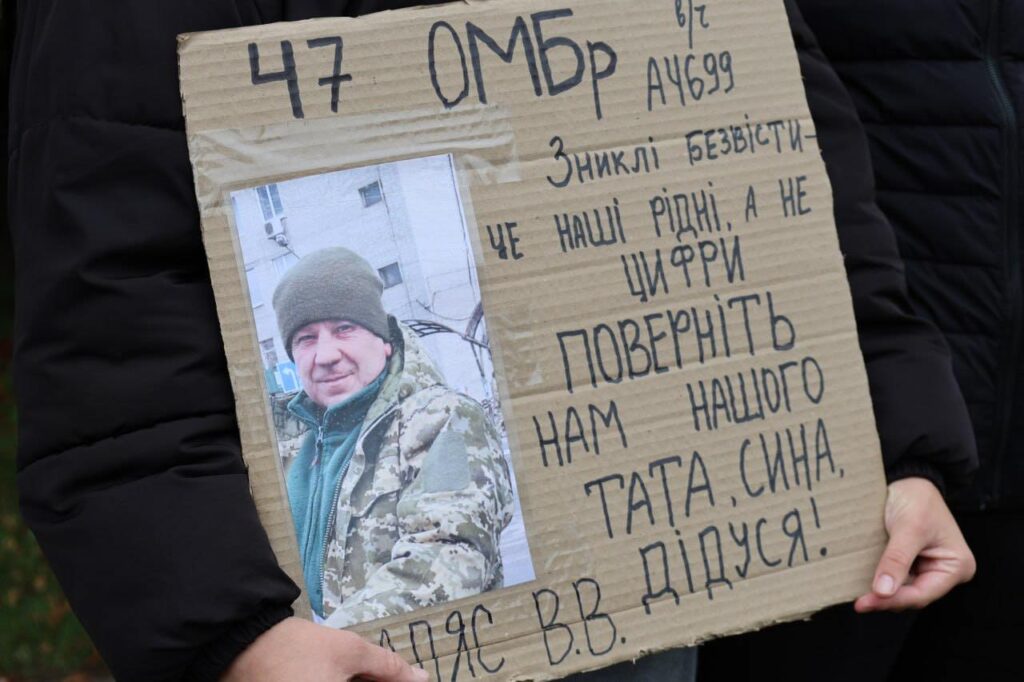 47 ОМБр в/ч
А4699
Зниклі безвісти-
це наші рідні, а не
цифри
ПОВЕРНІТЬ
НАМ НАШОГО
ТАТА, СИНА,
ДІДУСЯ!
В.В.